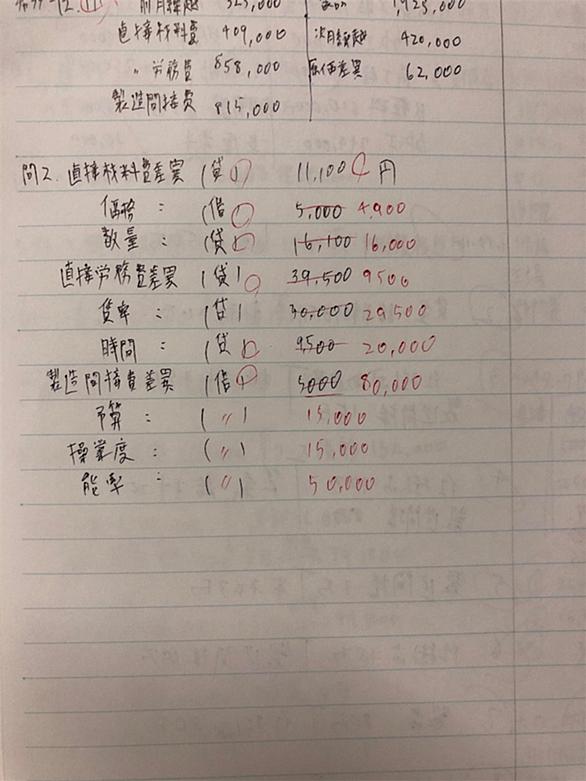 前月繰越 325,000 1,925,000
直接材料費 409,000 次月繰越 420,000
〃 労務費 858,000 原価差異 62,000
製造間接費 815,000
問2. 直接材料費差異 (貸) 11,100 円
価格 : (借) 5,000 4,900
数量 : (貸) 16,100 16,000
直接労務費差異 (貸) 39,500 9500
賃率 : (貸) 30,000 29,500
時間 : (貸) 9500 20,000
製造間接費差異 (借) 5000 80,000
予算 : (〃) 15,000
操業度 : (〃) 15,000
能率 : (〃) 50,000